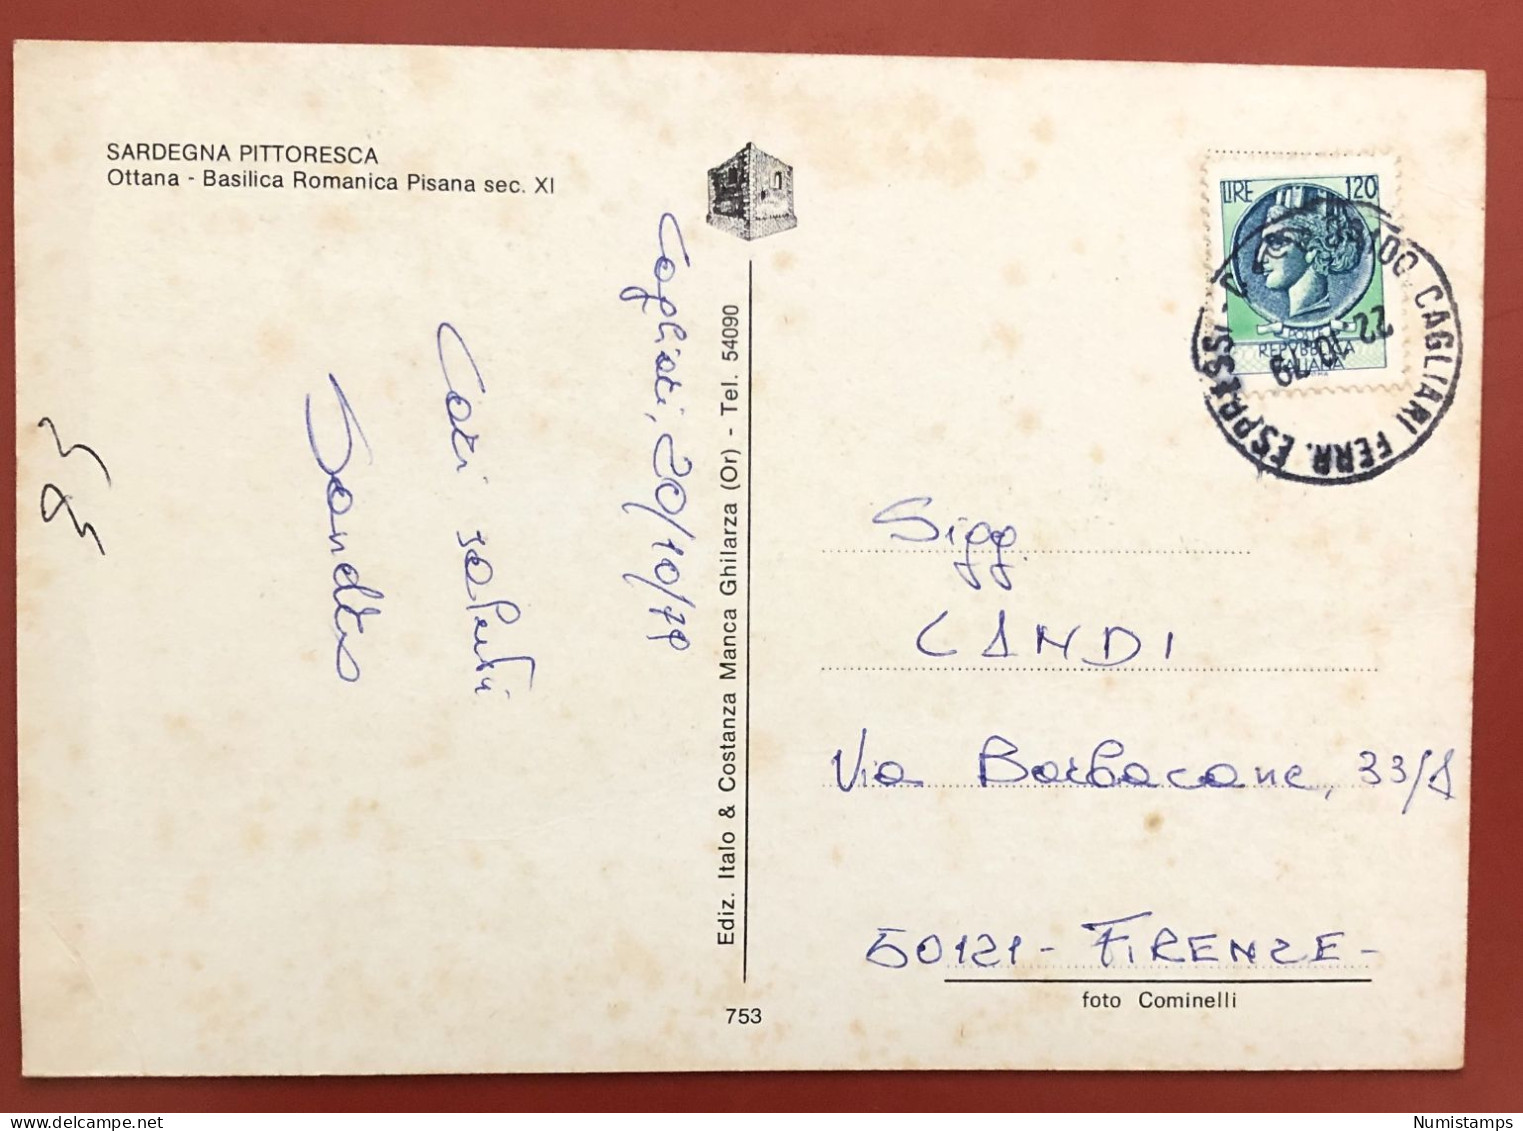 SARDEGNA PITTORESCA
Ottana - Basilica Romanica Pisana sec. XI
Cagliari, 20/10/79
Cari saluti
Ediz. Italo & Costanza Manca Ghilarza (Or) - Tel. 54090
753
LIRE 120
POSTE
REPVBBLICA
ITALIANA
CAGLIARI FERR. ESPRESSI
22.10.79
Sigg.
CANDI
Via Barbacane, 33/A
50121 - FIRENZE -
foto Cominelli
Numistamps